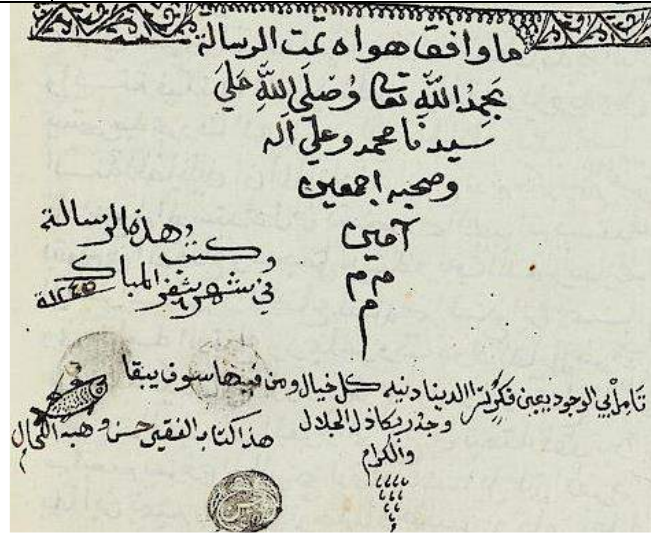 ما وافقا هواه تمت الرسالة
بحمد الله تعا وصلي الله علي
سيدنا محمد وعلي اله
وصحبه اجمعين
آمين
م م
م
وكتب هذه الرسالة
في شهر صفر المباك
١٢٤٥
تامل في الوجود بعين فكر ترا الدينا دنيه كل خيال ومن فيها سوف يبقا
وجه ربكا ذل الجلال
والكرام
هذا كتاب الفقير حسن وهبه الكحال